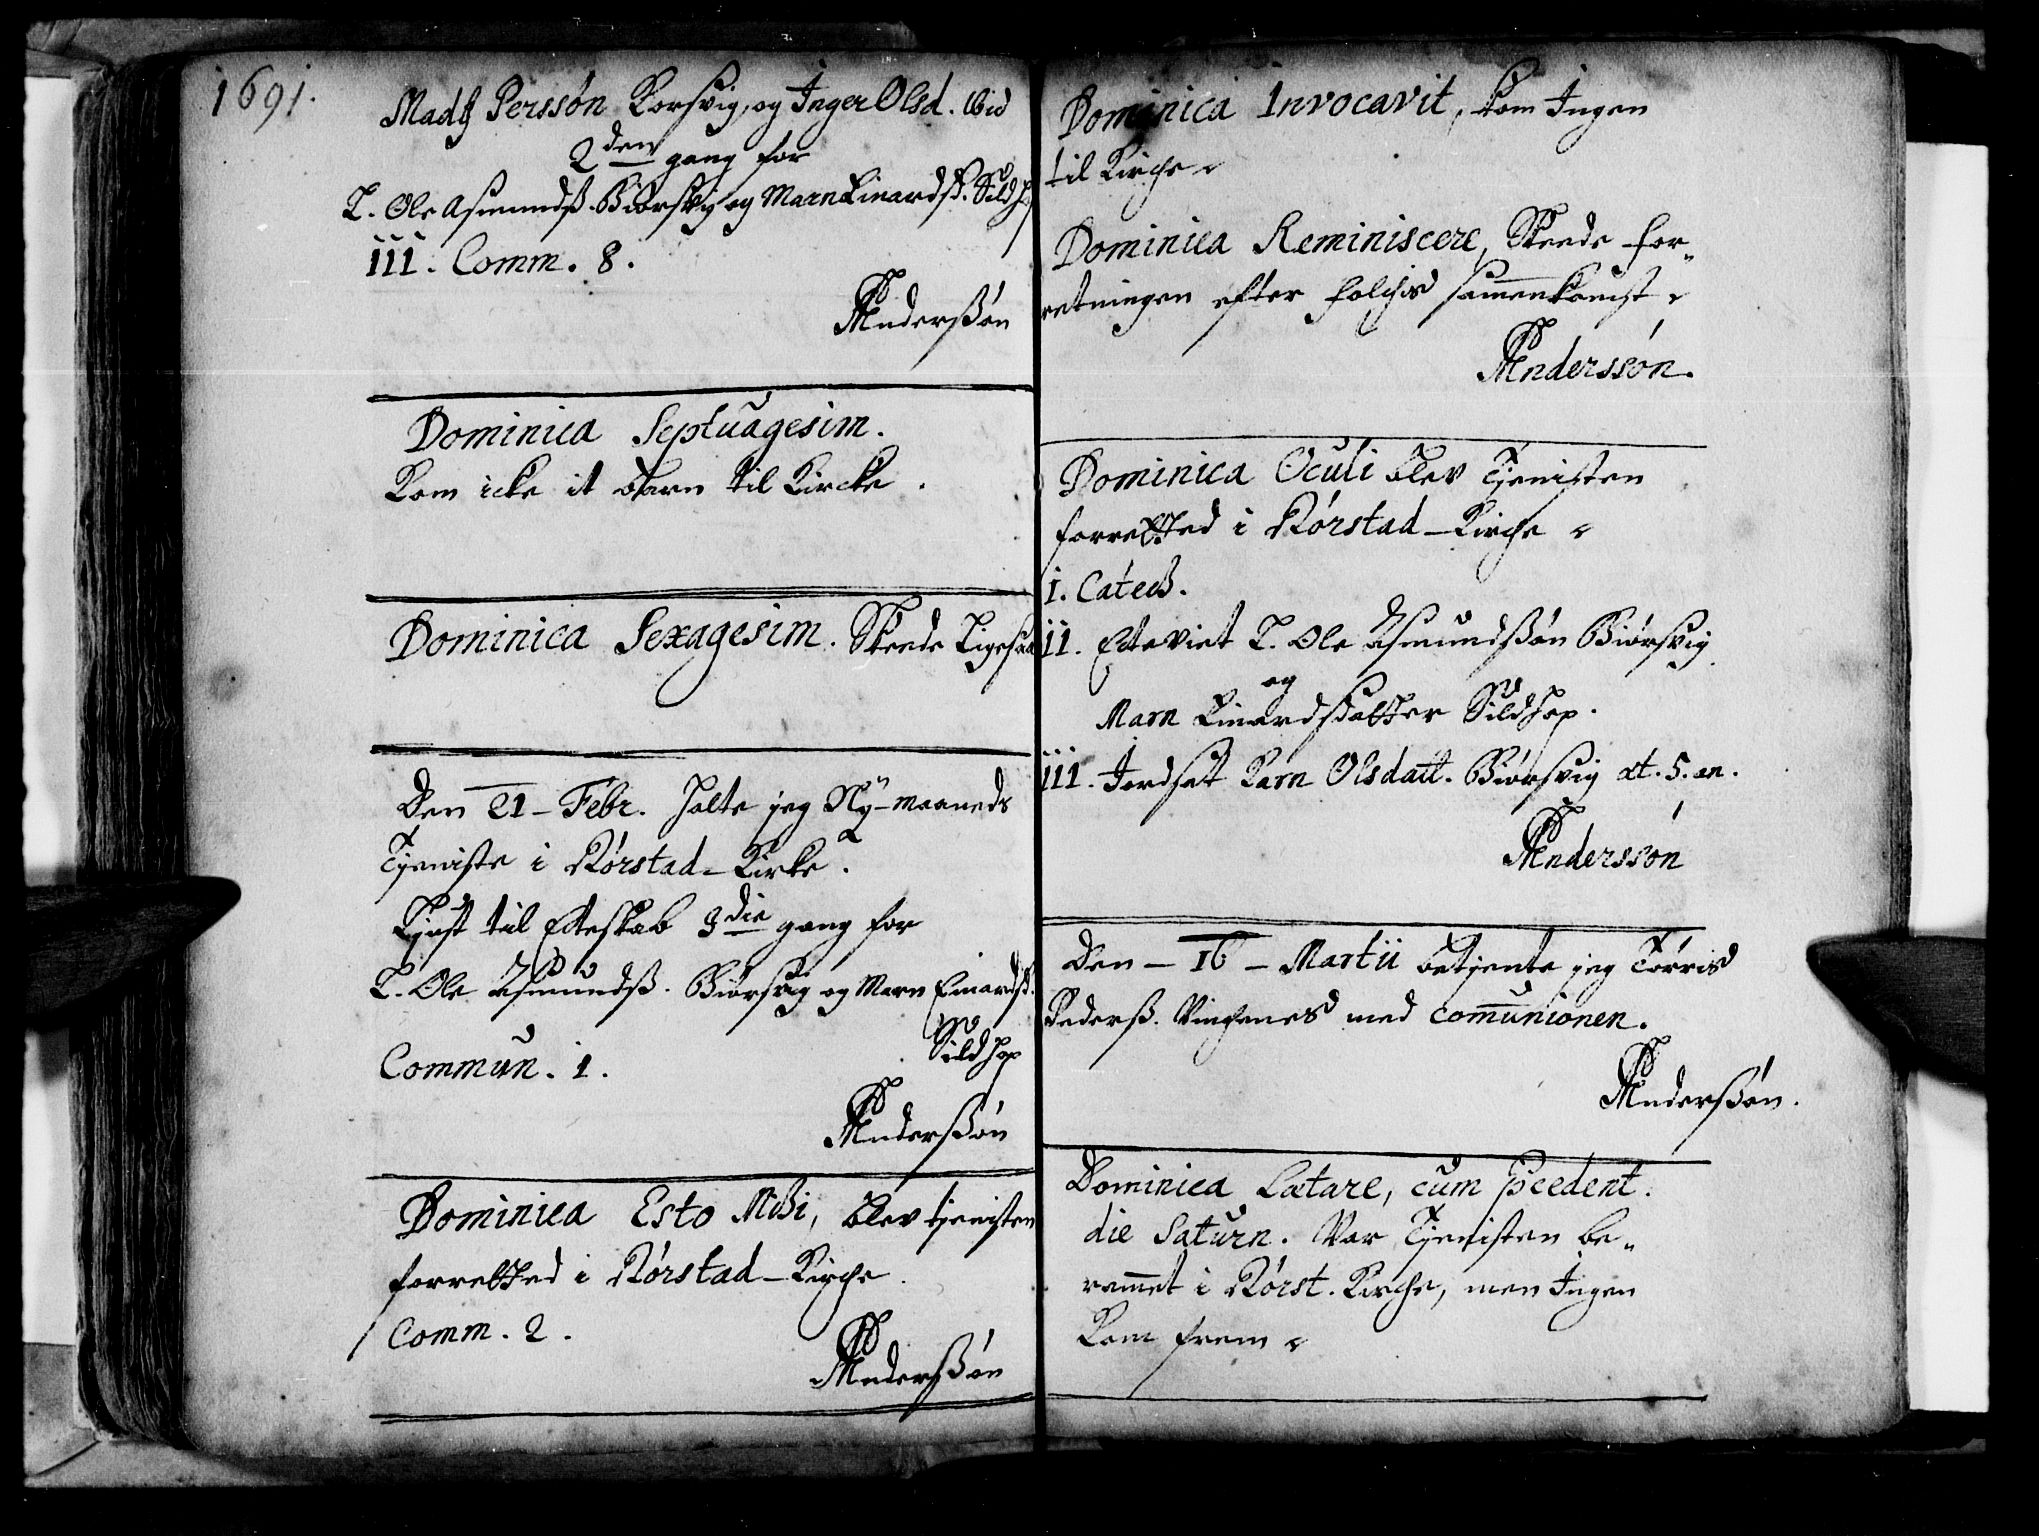 1691.
Madz Perssön Korsvig, og Inger Olsd. ibid
2den gang for
T. Ole Asmundsß. Biörsvig og Marn Einardsd. Sildhop
iii. Comm. 8.
Anderßön
Dominica Septuagesim.
Kom icke it barn til Kircke.
Dominica Sexagesim. Skeede Ligesaa
Den 21 - Febr. holte jeg Ny-maaneds
Tjeniste i Rörstad-Kirke.
Liust til Ecteskab 3die gang for
T. Ole Asmundsß. Biörsvig og Marn Einardsd.
Sildhop
Commun. 1.
Anderßön
Dominica Esto Mihi, blev tjenisten
forretted i Rörstad-Kirche.
Comm. 2.
Anderßön
Dominica Invocavit, kom Ingen
til Kirche
Dominica Reminiscere, Skeede for-
retningen efter folchis sammenkomst
Anderssön.
Dominica Oculi blev Tjenisten
forretted i Rörstad-Kirche
I. Catech.
II. Ecteviet T. Ole Asmundßön Biörsvig
og
Marn Einardsdatter Sildhop.
III. Jordsat Karn Olsdatt. Biörsvig æt. 5. an.
Anderssön
Den - 16 - Martii betjente jeg Törris
Pedersß. Vinchenes med comunionen.
Anderßön.
Dominica Lætare, cum pcedent.
die Saturn. Var Tjenisten be-
rammet i Rörst. Kirche, men Ingen
Kom frem